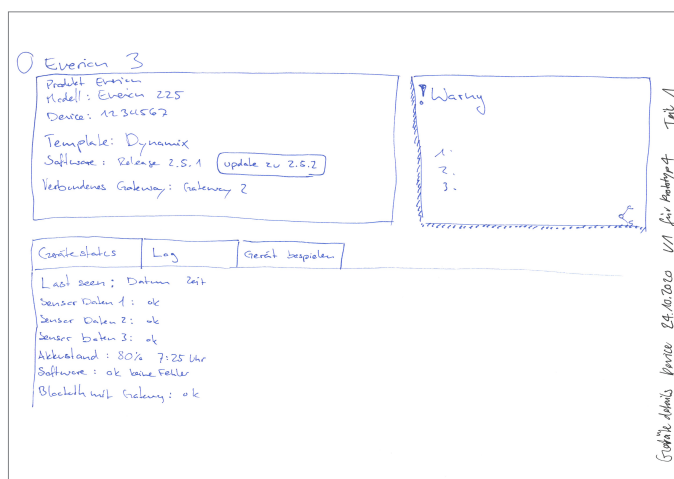 Everion 3
Produkt Everion
Modell: Everion 225
Device: 1234567
Template: Dynamix
Software: Release 2.5.1 update zu 2.5.2
Verbundenes Gateway: Gateway 2
! Warnung
1.
2.
3.
Gerätestatus Log Gerät bespielen
Last seen: Datum Zeit
Sensor Daten 1: ok
Sensor Daten 2: ok
Sensor Daten 3: ok
Akkustand: 80% 7:25 Uhr
Software: ok keine Fehler
mit Gateway: ok
Gerätedetails Device 24.10.2020 V1 für Prototyp 4 Teil 1